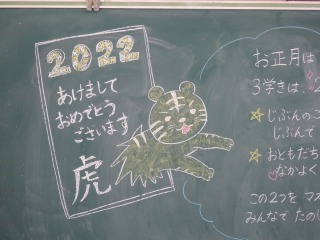 2022
あけまして
おめでとう
ございます
虎
お正月は
3学きは、
じぶんのこ
じぶんで
おともだち
なかよく
この2つを マス
みんなで たのし